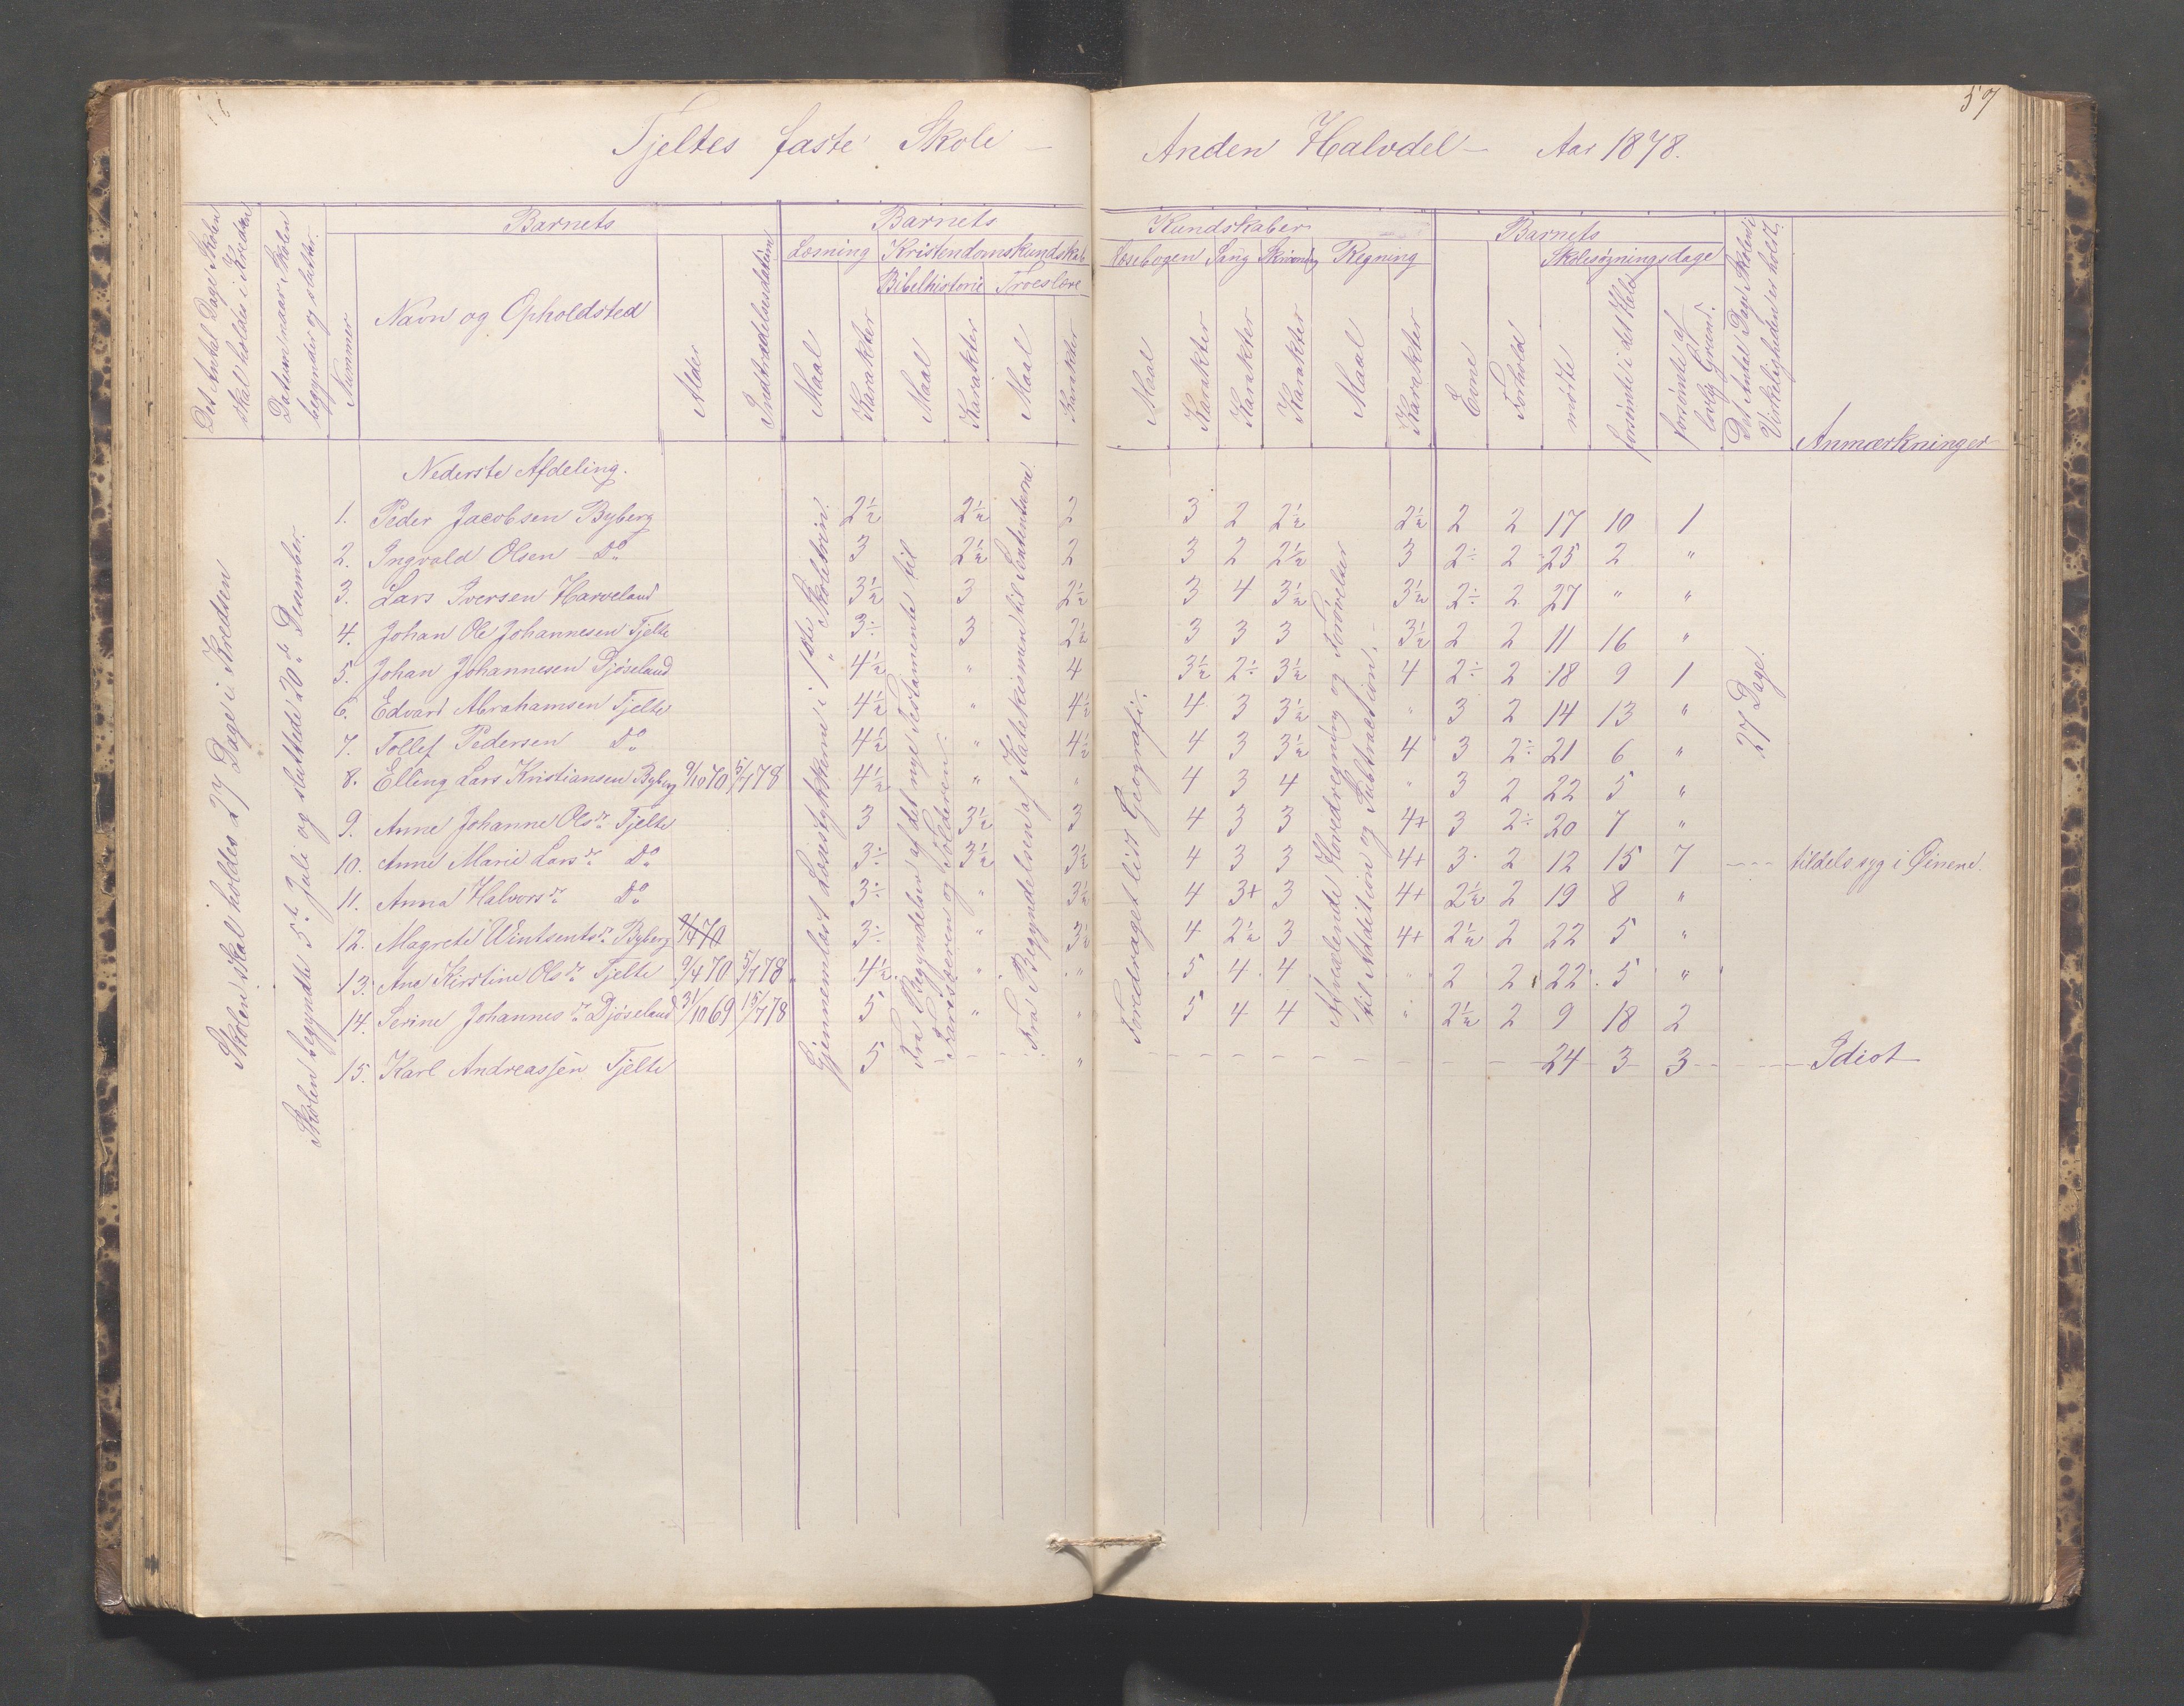 57
Tjeltes faste Skole — Anden Halvdel — Aar 1878.
Det Antal Dage Skolen skal holdes i Kredsen
Datum naar Skolen begynder og slutter.
Nummer
Barnets
Navn og Opholdsted
Alder
Indtrædelsesdatum
Barnets
Læsning
Maal
Karakter
Kristendomskundskab
Bibelhistorie
Maal
Karakter
Troeslære
Maal
Karakter
Kundskaber
Læsebogen Sang Skrivning Regning
Maal
Karakter
Karakter
Karakter
Maal
Karakter
Barnets
Evne
Forhold
Skolesøgningsdage
mødte
forsømte i det Hele
forsømte af lovlig Grund.
Det Antal Dage Skolen i Virkeligheden er holdt.
Anmærkninger
Skolen skal holdes 27 Dage i Kredsen
Skolen begyndte 5te Juli og sluttede 20de December.
Gjennemlæst Læsestykkerne i 1ste Skoletrin.
Fra Begyndelsen af det nye Testamente til Farisæeren og Tolderen.
Fra Begyndelsen af Katekismen til Sententserne
Foredraget lidt Geografi.
Advælende Hovedregning og Forøvelser til Addition og Subtraction.
27 Dage.
Nederste Afdeling.
1. Peder Jacobsen Byberg 2½ 2½ 2 3 2 2½ 2½ 2 2 17 10 1
2. Ingvald Olsen Do 3 2½ 2 3 2 2½ 3 2÷ 2 25 2 "
3. Lars Iversen Harveland 3½ 3 2½ 3 4 3½ 3½ 2÷ 2 27 " "
4. Johan Ole Johannesen Tjelte 3÷ 3 2½ 3 3 3 3½ 2 2 11 16 "
5. Johan Johannesen Djøseland 4½ " 4 3½ 2÷ 3½ 4 2÷ 2 18 9 1
6. Edvard Abrahamsen Tjelte 4½ " 4½ 4 3 3½ " 3 2 14 13 "
7. Tollef Pedersen Do 4½ " 4½ 4 3 3½ 4 3 2÷ 21 6 "
8. Elling Lars Kristiansen Byberg 9/10 70 5/7 78 4½ " " 4 3 4 " 3 2 22 5 "
9. Anne Johanne Olsdr. Tjelte 3 3½ 3 4 3 3 4+ 3 2÷ 20 7 "
10. Anne Marie Larsdr. Do 3÷ 3½ 3½ 4 3 3 4+ 3 2 12 15 7 tildels syg i Øinene.
11. Anna Halvorsdr. Do 3÷ " 3½ 4 3+ 3 4+ 2½ 2 19 8 "
12. Magrete Wintsentsdr. Byberg 3÷ " 3½ 4 2½ 3 4+ 2½ 2 22 5 "
13. Ana Kirstine Olsdr. Tjelte 9/4 70 5/7 78 4½ " " 5 4 4 " 2 2 22 5 "
14. Serine Johannesdr. Djøseland 31/10 69 15/7 78 5 " " 5 4 4 " 2½ 2 9 18 2
15. Karl Andreassen Tjelte 5 " 24 3 3 Idiot